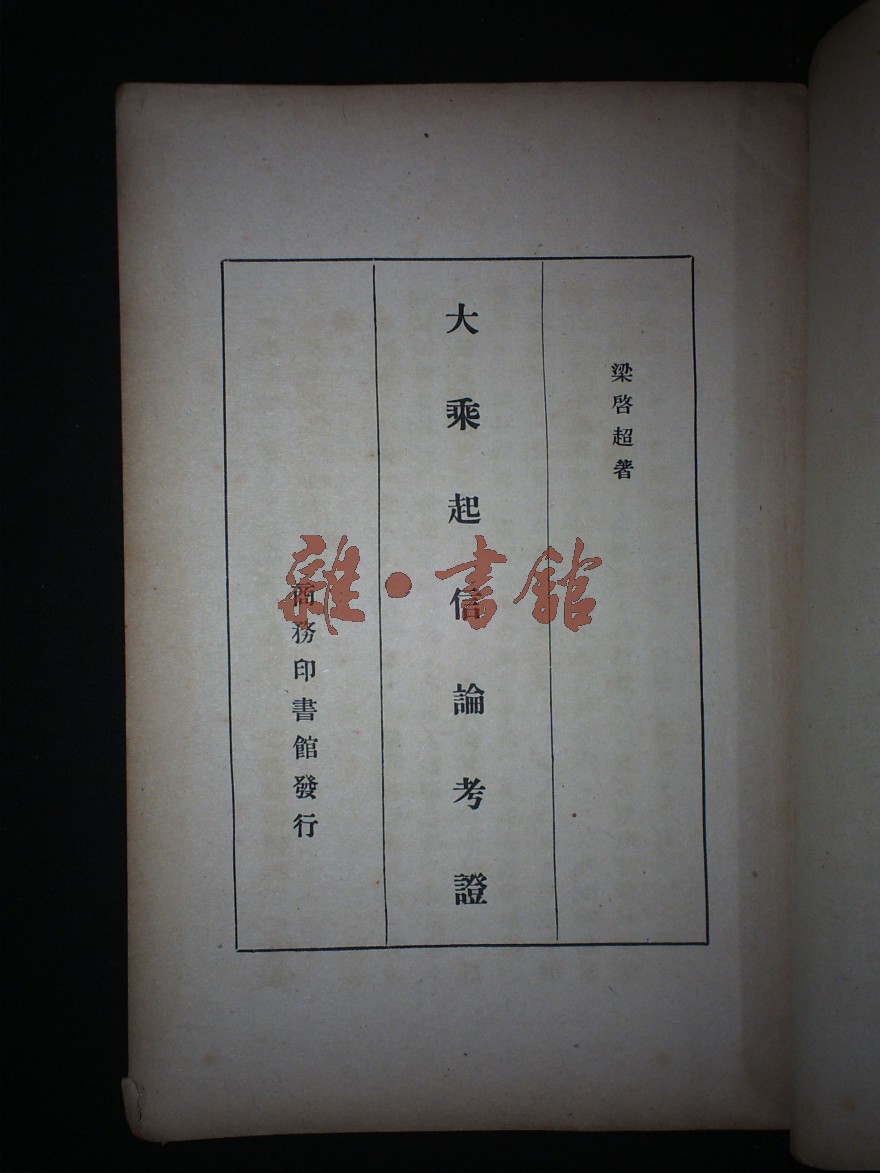 梁啓超著
大乘起信論考證
商務印書館發行
雜·書館